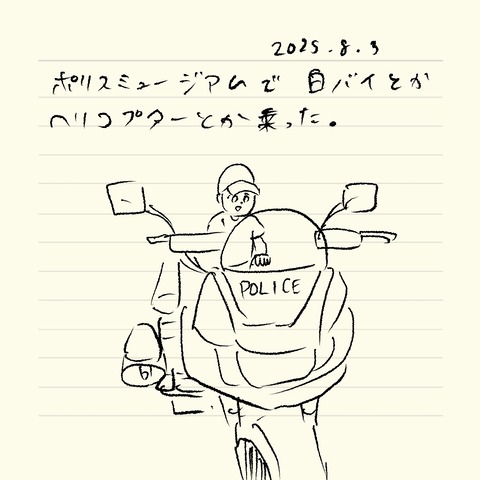 2025.8.3
ポリスミュージアムで 白バイとか
ヘリコプターとか乗った。
POLICE